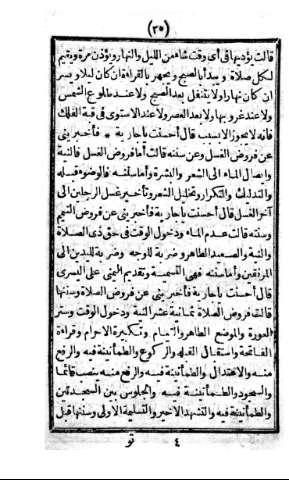 (٢٥)
قالت يؤديها فى أى وقت شاء من الليل والنهار ويؤذن مرة ويقيم
لكل صلاة ويبدأ بالصبح ويجهر بالقراءة ان كان ليلا ويسر
ان كان نهارا ولا يتنفل بعد الصبح ولا عند طلوع الشمس
ولا عند غروبها ولا بعد العصر ولا عند الاستوى فى قبة الفلك
فانه لا يجوز الا بسبب قال أحسنت يا جارية * فأخبرينى
عن فروض الغسل وعن سننه قالت أما فروض الغسل فالنية
وايصال الماء الى الشعر والبشرة وأما سننه فالوضوء قبله
والتدليك والتكرار وتخليل الشعر وتأخير غسل الرجلين الى
آخر الغسل قال أحسنت يا جارية فأخبرينى عن فروض التيمم
وسننه قالت عدم الماء ودخول الوقت فى حق ذى الصلاة
والنية والصعيد الطاهر وضربة للوجه وضربة لليدين الى
المرفقين وأما سننه فهى التسمية وتقديم اليمنى على اليسرى
قال أحسنت يا جارية فأخبرينى عن فروض الصلاة وسننها
قالت فروض الصلاة ثمانية عشر النية ودخول الوقت وستر
العورة والموضع الطاهر والقيام وتكبيرة الاحرام وقراءة
الفاتحة واستقبال القبلة والركوع والطمأنينة فيه والرفع
منه والاعتدال والطمأنينة فيه والرفع منه منتصبا قائما
والسجود والطمأنينة فيه والجلوس بين السجدتين
والطمأنينة فيه والتشهد الاخير والتسليمة الاولى وسننها قبل
٤ تو